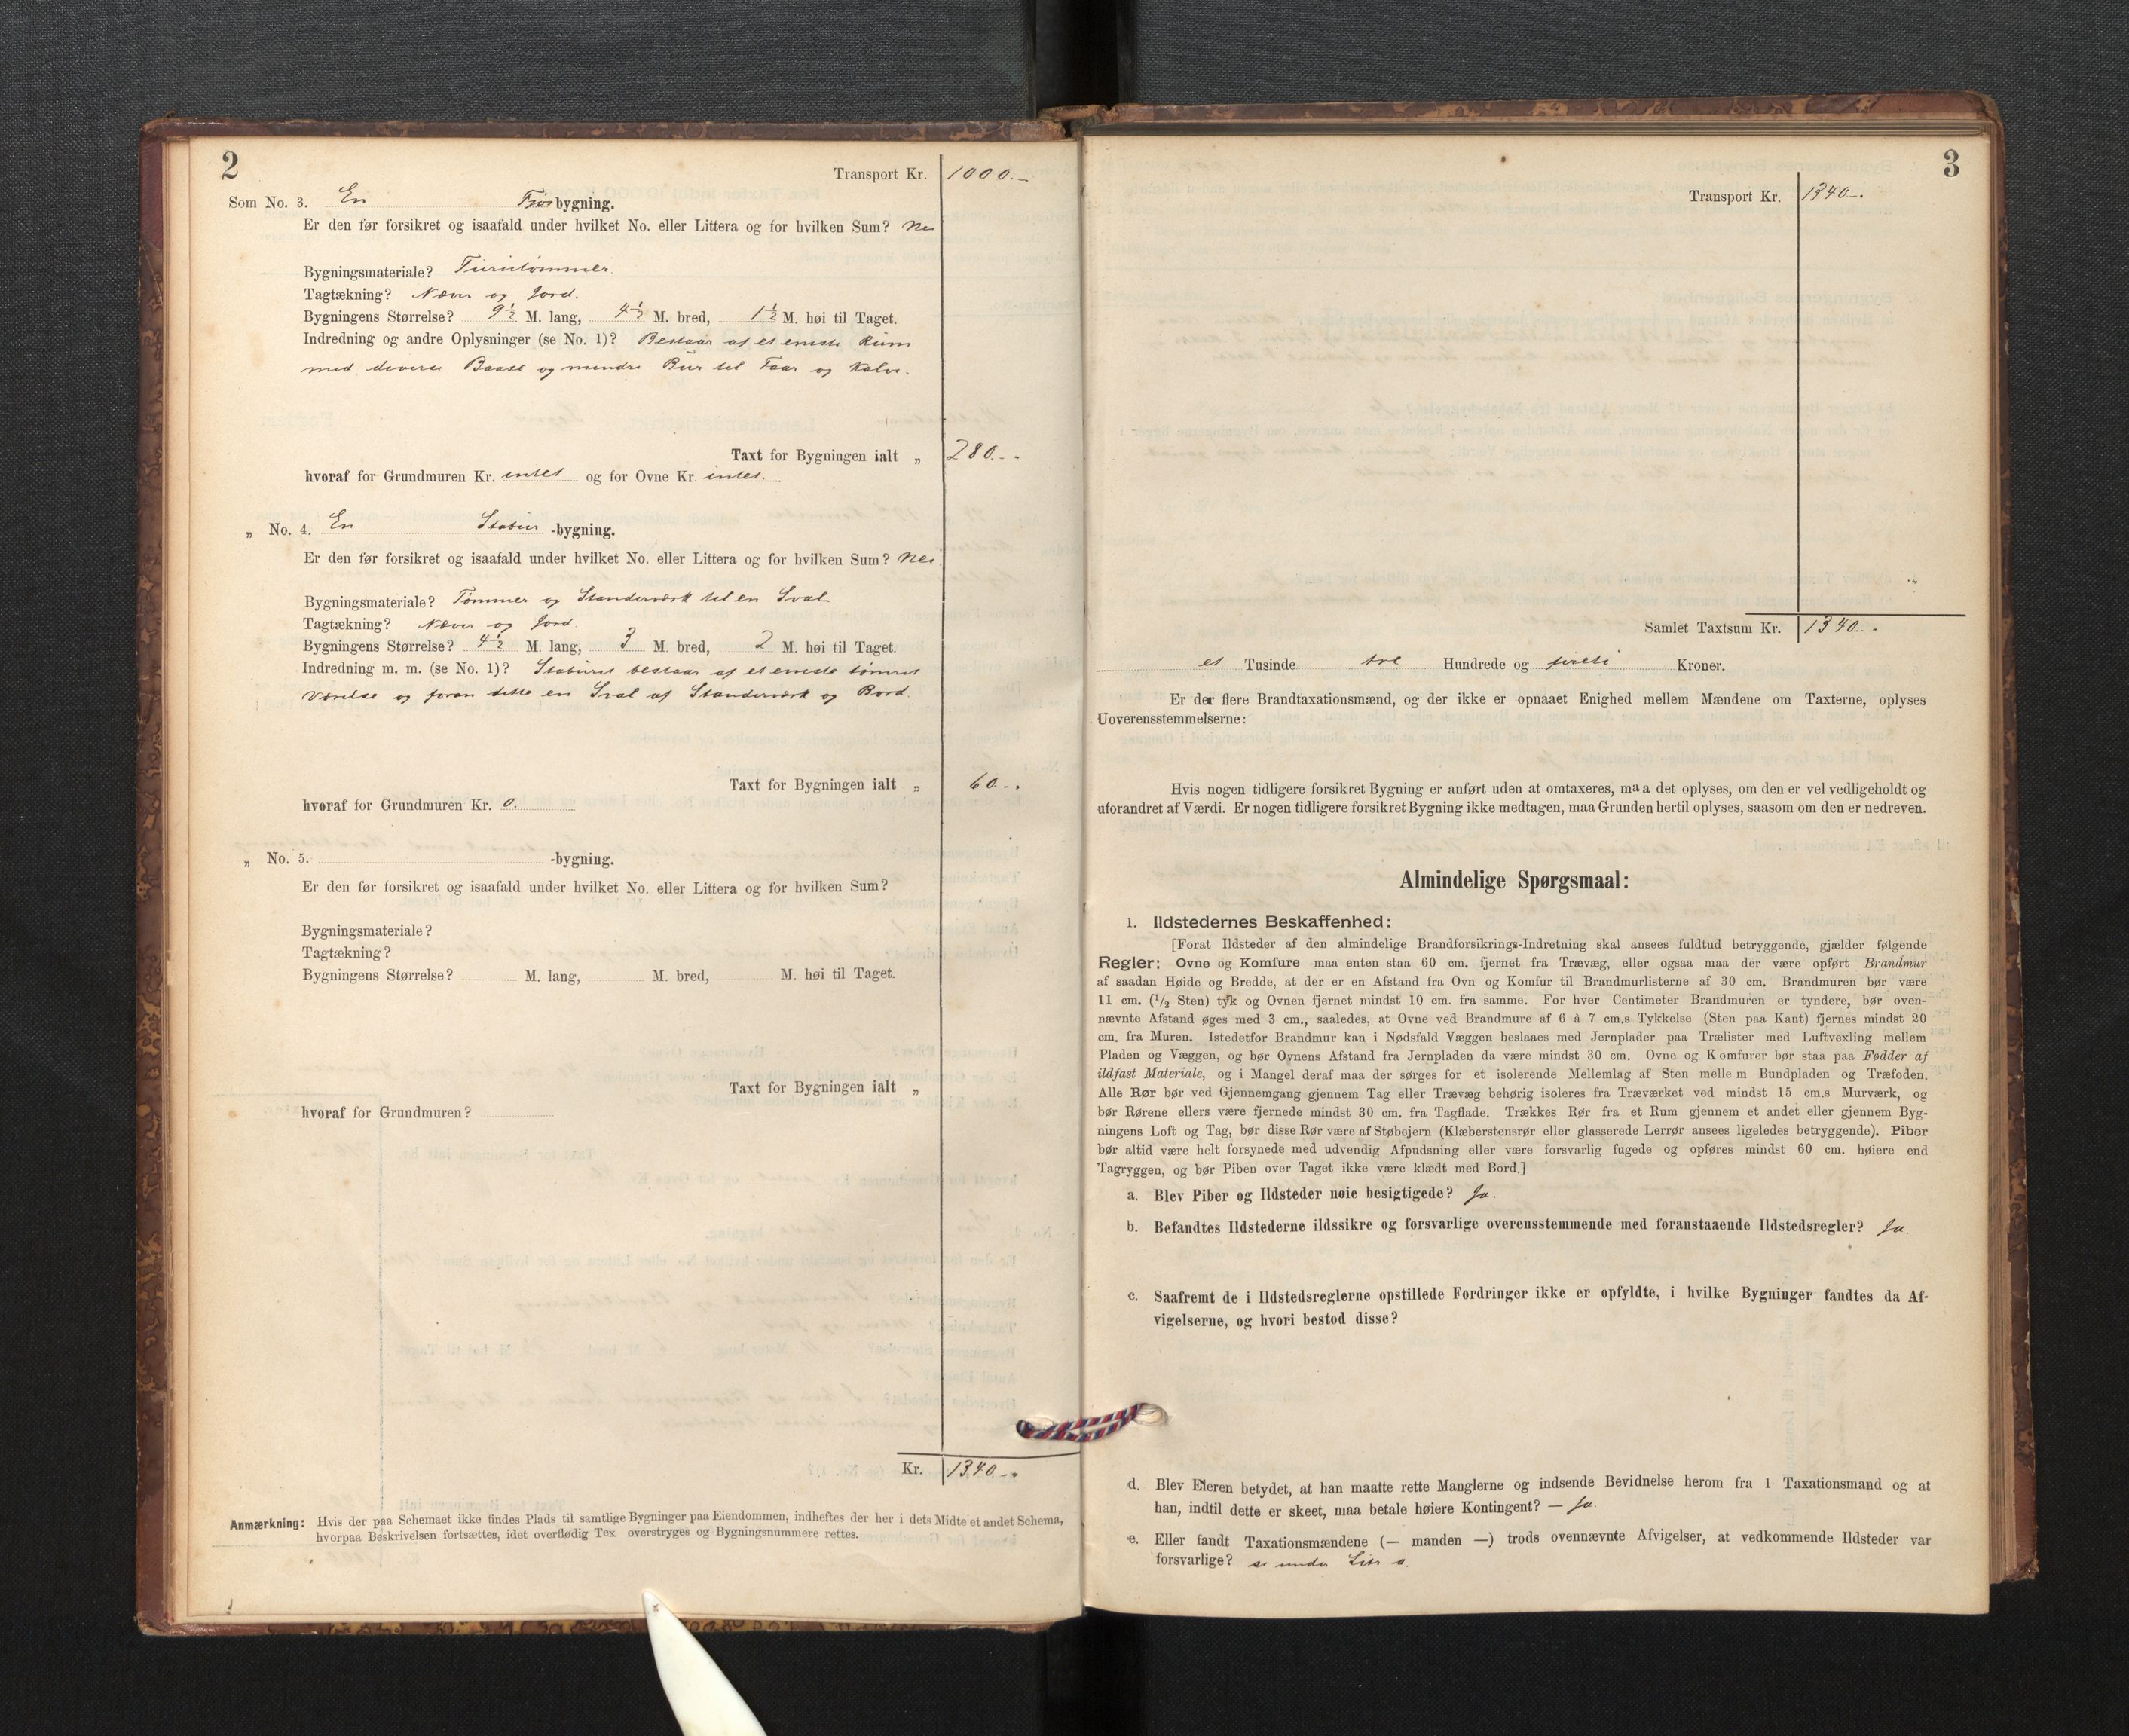 2
Transport Kr. 1000.-
Som No. 3. En Fjøsbygning.
Er den før forsikret og isaafald under hvilket No. eller Littera og for hvilken Sum? Nei
Bygningsmateriale? Furutømmer.
Tagtækning? Næver og Jord.
Bygningens Størrelse? 9½ M. lang, 4½ M. bred, 1½ M. høi til Taget.
Indredning og andre Oplysninger (se No. 1)? Bestaar af et eneste Rum
med diverse Baase og mindre Rur til Faar og Kalve.
Taxt for Bygningen ialt „ 280.-.
hvoraf for Grundmuren Kr. intet og for Ovne Kr. intet.
„ No. 4. En Stabur -bygning.
Er den før forsikret og isaafald under hvilket No. eller Littera og for hvilken Sum? Nei.
Bygningsmateriale? Tømmer og Standerværk til en Sval
Tagtækning? Næver og Jord.
Bygningens Størrelse? 4½ M. lang, 3 M. bred, 2 M. høi til Taget.
Indredning m. m. (se No. 1)? Staburet bestaar af et eneste tømret
Værelse og foran dette en Sval af Standerværk og Bord.
Taxt for Bygningen ialt „ 60.-.
hvoraf for Grundmuren Kr. 0.
„ No. 5. -bygning.
Er den før forsikret og isaafald under hvilket No. eller Littera og for hvilken Sum?
Bygningsmateriale?
Tagtækning?
Bygningens Størrelse? M. lang, M. bred, M. høi til Taget.
Taxt for Bygningen ialt „
hvoraf for Grundmuren?
Kr. 1340.-.
Anmærkning: Hvis der paa Schemaet ikke findes Plads til samtlige Bygninger paa Eiendommen, indheftes der her i dets Midte et andet Schema,
hvorpaa Beskrivelsen fortsættes, idet overflødig Tex overstryges og Bygningsnummere rettes.
3
Transport Kr. 1340.-.
Samlet Taxtsum Kr. 1340.-.
et Tusinde tre Hundrede og fireti Kroner.
Er der flere Brandtaxationsmænd, og der ikke er opnaaet Enighed mellem Mændene om Taxterne, oplyses
Uoverensstemmelserne:
Hvis nogen tidligere forsikret Bygning er anført uden at omtaxeres, maa det oplyses, om den er vel vedligeholdt og
uforandret af Værdi. Er nogen tidligere forsikret Bygning ikke medtagen, maa Grunden hertil oplyses, saasom om den er nedreven.
Almindelige Spørgsmaal:
1. Ildstedernes Beskaffenhed:
[Forat Ildsteder af den almindelige Brandforsikrings-Indretning skal ansees fuldtud betryggende, gjælder følgende
Regler: Ovne og Komfure maa enten staa 60 cm. fjernet fra Trævæg, eller ogsaa maa der være opført Brandmur
af saadan Høide og Bredde, at der er en Afstand fra Ovn og Komfur til Brandmurlisterne af 30 cm. Brandmuren bør være
11 cm. (1/2 Sten) tyk og Ovnen fjernet mindst 10 cm. fra samme. For hver Centimeter Brandmuren er tyndere, bør oven-
nævnte Afstand øges med 3 cm., saaledes, at Ovne ved Brandmure af 6 à 7 cm.s Tykkelse (Sten paa Kant) fjernes mindst 20
cm. fra Muren. Istedetfor Brandmur kan i Nødsfald Væggen beslaaes med Jernplader paa Trælister med Luftvexling mellem
Pladen og Væggen, og bør Ovnens Afstand fra Jernpladen da være mindst 30 cm. Ovne og Komfurer bør staa paa Fødder af
ildfast Materiale, og i Mangel deraf maa der sørges for et isolerende Mellemlag af Sten mellem Bundpladen og Træfoden.
Alle Rør bør ved Gjennemgang gjennem Tag eller Trævæg behørig isoleres fra Træværket ved mindst 15 cm.s Murværk, og
bør Rørene ellers være fjernede mindst 30 cm. fra Tagflade. Trækkes Rør fra et Rum gjennem et andet eller gjennem Byg-
ningens Loft og Tag, bør disse Rør være af Støbejern (Klæberstensrør eller glasserede Lerrør ansees ligeledes betryggende). Piber
bør altid være helt forsynede med udvendig Afpudsning eller være forsvarlig fugede og opføres mindst 60 cm. høiere end
Tagryggen, og bør Piben over Taget ikke være klædt med Bord.]
a. Blev Piber og Ildsteder nøie besigtigede? Ja.
b. Befandtes Ildstederne ildssikre og forsvarlige overensstemmende med foranstaaende Ildstedsregler? Ja.
c. Saafremt de i Ildstedsreglerne opstillede Fordringer ikke er opfyldte, i hvilke Bygninger fandtes da Af-
vigelserne, og hvori bestod disse?
d. Blev Eieren betydet, at han maatte rette Manglerne og indsende Bevidnelse herom fra 1 Taxationsmand og at
han, indtil dette er skeet, maa betale høiere Kontingent? — Ja.
e. Eller fandt Taxationsmændene (— manden —) trods ovennævnte Afvigelser, at vedkommende Ildsteder var
forsvarlige? se under Litr a.